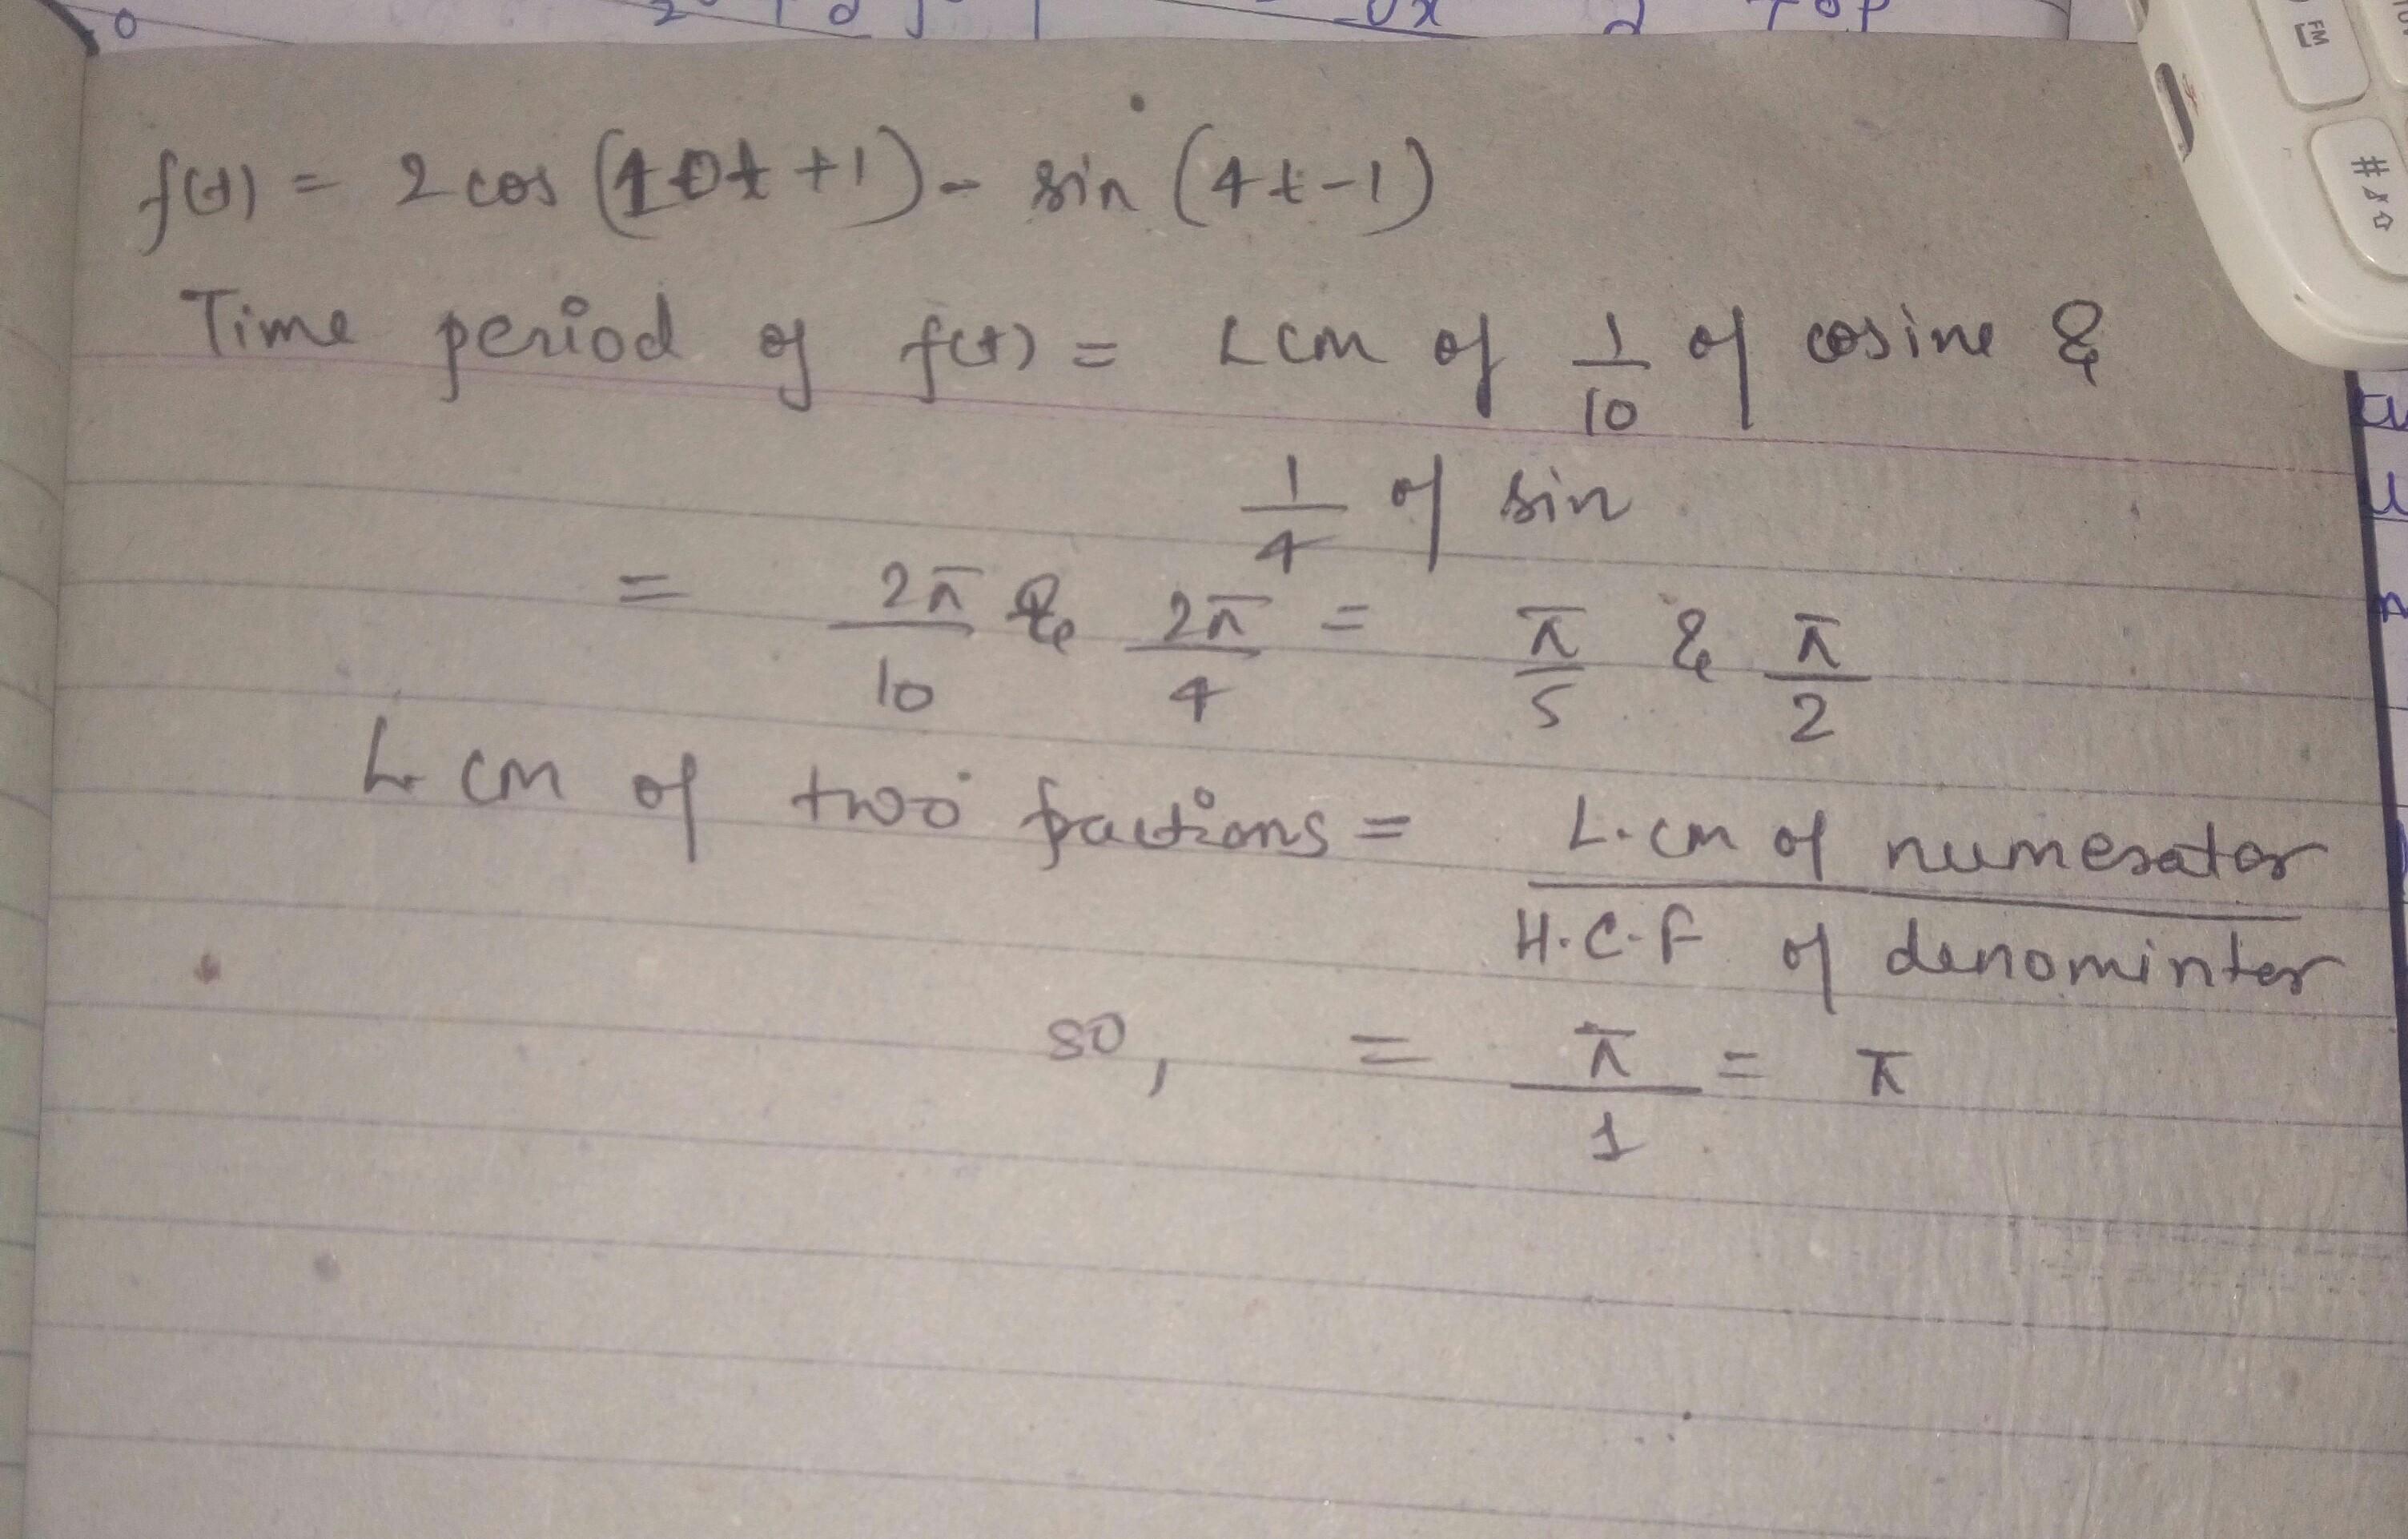 f(t) = 2 cos (10t + 1) - sin (4t - 1)
Time period of f(t) = LCM of 1/10 of cosine &
1/4 of sin
= 2π/10 & 2π/4 = π/5 & π/2
L cm of two fractions = L.cm of numerator / H.C.F of denominter
so, = π/1 = π
FM
#